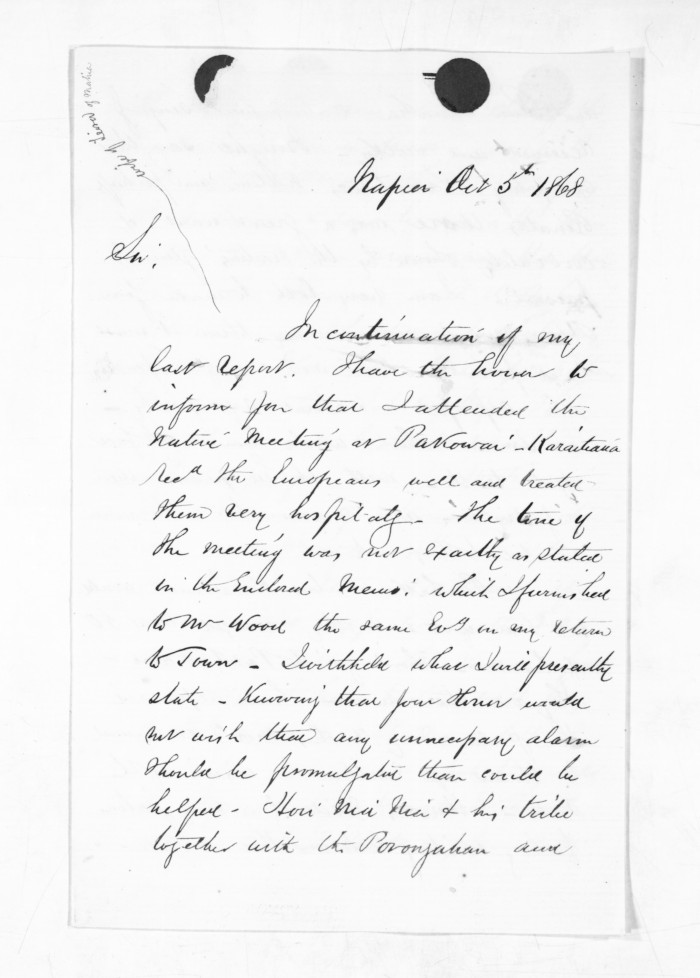 Napier Oct 5th 1868
Sir,
In continuation of my
last report. I have the honor to
inform you that I attended the
Native Meeting at Pakowai - Karaitiana
recd the Europeans well and treated
them very hospitably - The tone of
the meeting was not exactly as stated
in the Enclosed Memo: which I furnished
to Mr Wood the same Evg on my return
to Town - I withheld what I will presently
state - Knowing that your Honor would
not wish that any unnecessary alarm
should be promulgated than could be
helped - Hori Nia Nia & his tribe
together with the Porongahau and